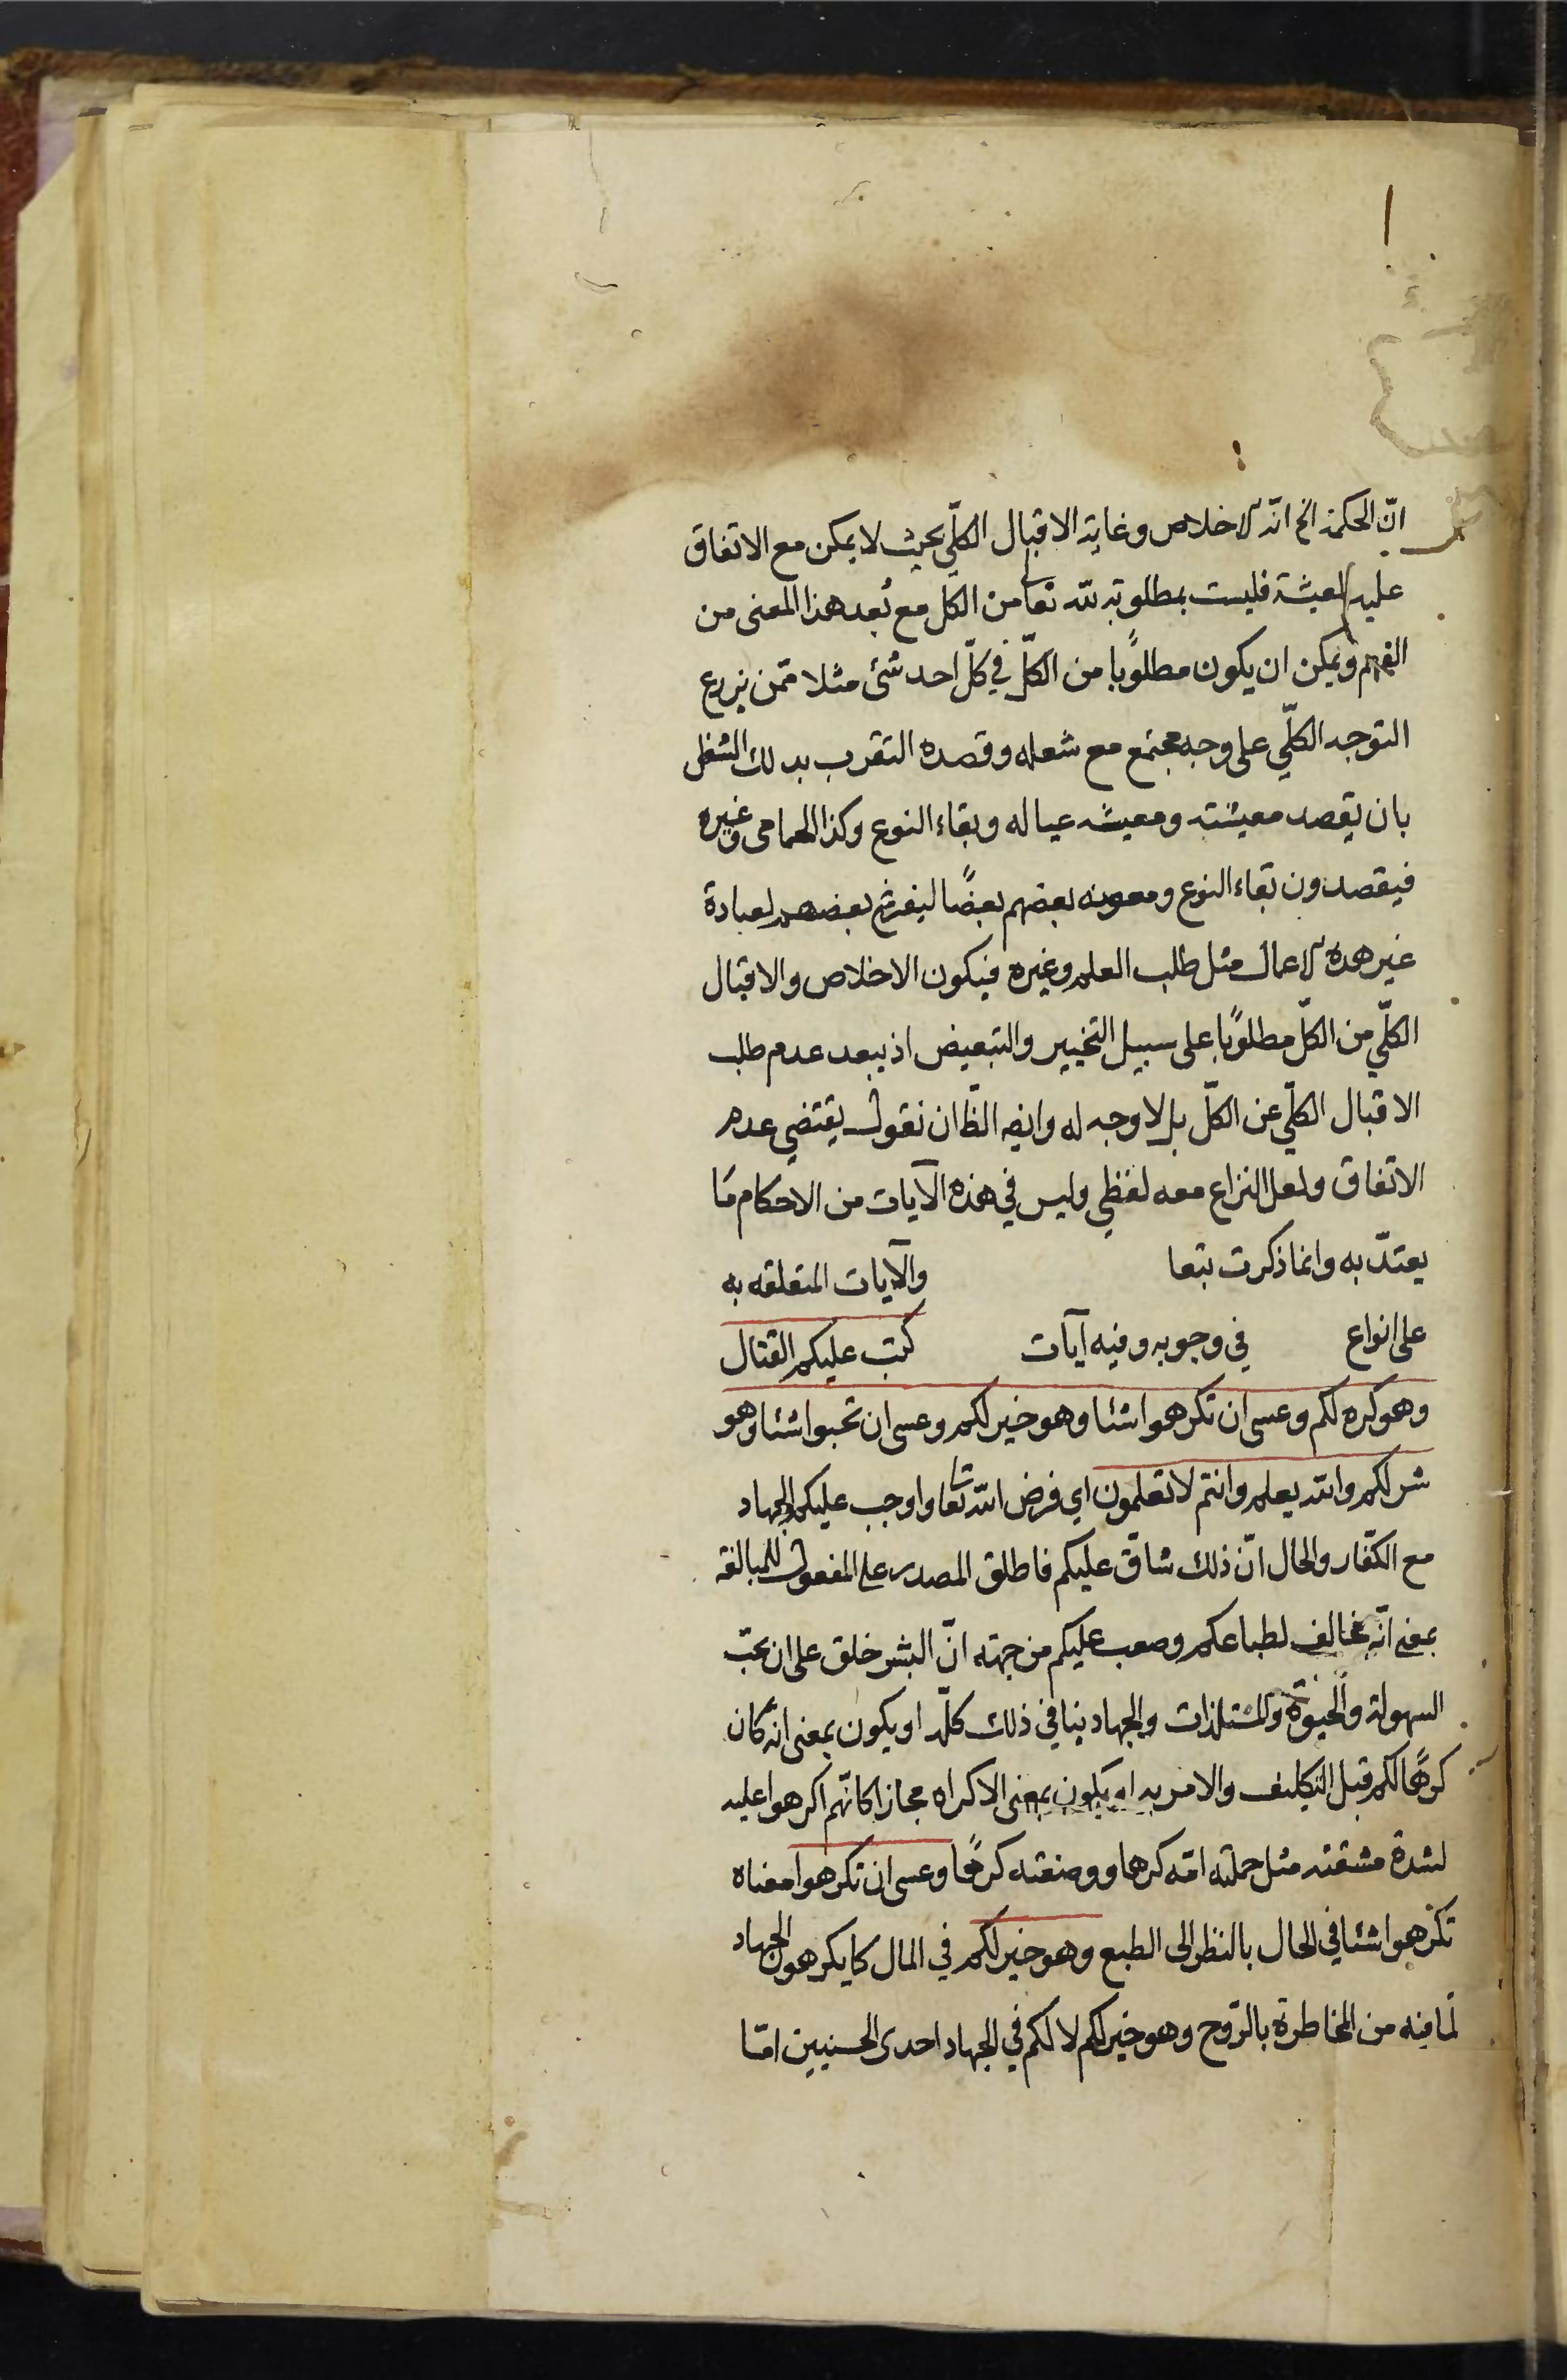 انّ الحكمة الخ انّه الاخلاص وغاية الاقبال الكلّي بحيث لا يمكن مع الاتفاق
عليه المعيشة فليست بمطلوبة لله تعا من الكل مع بُعد هذا المعنى من
الفهم ويمكن ان يكون مطلوبًا من الكلّ في كلّ احد شئ مثلا ممّن يزرع
التوجه الكلّي على وجه مجتمع مع شغله وقصده التقرب بذلك الشغل
بان يقصد معيشته ومعيشه عياله وبقاء النوع وكذا الحمامى وغيره
فيقصدون بقاء النوع ومعونه بعضهم بعضًا ليفرغ بعضهم لعبادة
غير هذه الاعمال مثل طلب العلم وغيره فيكون الاخلاص والاقبال
الكلّي من الكلّ مطلوبًا على سبيل التخيير والتبعيض اذ يبعد عدم طلب
الاقبال الكلّي عن الكلّ بل لا وجه له وايضه الظّ ان نقول يقتضي عدم
الاتفاق ولعل النزاع معه لفظي وليس في هذه الآيات من الاحكام مَا
يعتدّ به وانما ذكرت تبعا والآيات المتعلقه به
على انواع في وجوبه وفيه آيات كتب عليكم القتال
وهو كره لكم وعسى ان تكرهوا شئا وهو خير لكم وعسى ان تحبوا شئا وهو
شر لكم والله يعلم وانتم لا تعلمون اي فرض الله تعا واوجب عليكم الجهاد
مع الكفّار والحال انّ ذلك شاقّ عليكم فاطلق المصدر على المفعول للمبالغة
بمعنى انّه مخالف لطباعكم وصعب عليكم من جهته انّ البشر خلق على ان يحبّ
السهولة والحيوة والمستلذات والجهاد ينافي ذلك كلّه او يكون بمعنى انه كان
كرهًا لكم قبل التكليف والامر به او يكون بمعنى الاكراه مجازا كانّهم اكرهوا عليه
لشدة مشقته مثل حملته امّه كرها ووضعته كرهًا وعسى ان تكرهوا معناه
تكرهوا شئا في الحال بالنظر الى الطبع وهو خير لكم في المال كما يكرهون الجهاد
لما فيه من المخاطرة بالرّوح وهو خير لكم لا لكم في الجهاد احدى الحسنيين امّا